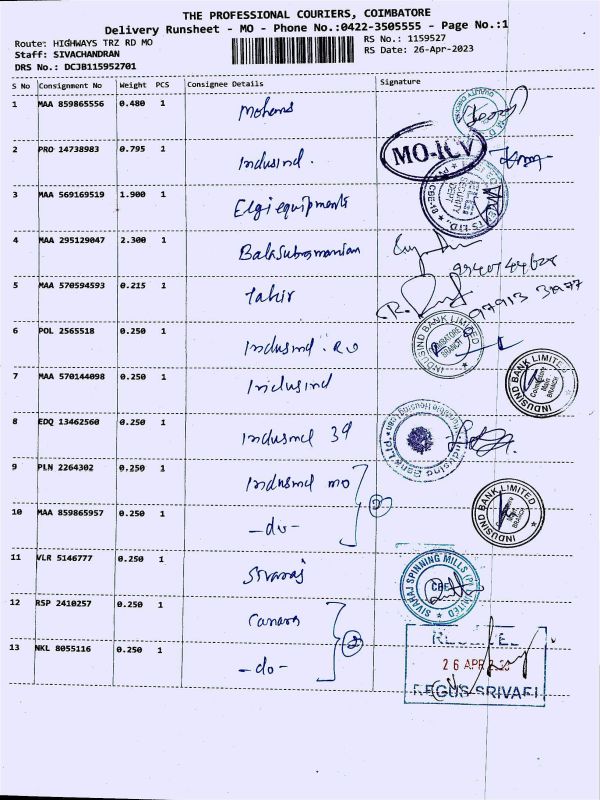 THE PROFESSIONAL COURIERS, COIMBATORE
Delivery Runsheet - MO - Phone No.:0422-3505555 - Page No.:1
Route: HIGHWAYS TRZ RD MO
RS No.: 1159527
Staff: SIVACHANDRAN
RS Date: 26-Apr-2023
DRS No.: DCJB115952701
S No Consignment No Weight PCS Consignee Details Signature
1 MAA 859865556 0.480 1 Mohana
2 PRO 14738983 0.795 1 Indusind. MO-ICV
3 MAA 569169519 1.900 1 Elgi equipments
4 MAA 295129047 2.300 1 Balasubramanian
5 MAA 570594593 0.215 1 Tahir
6 POL 2565518 0.250 1 Indusind
INDUSIND BANK LIMITED COIMBATORE BRANCH
7 MAA 570144098 0.250 1 Indusind
INDUSIND BANK LIMITED Coimbatore Main BRANCH
8 EDQ 13462560 0.250 1 Indusind 39
IndusInd Bank Ltd.
9 PLN 2264302 0.250 1 Indusind mo
10 MAA 859865957 0.250 1 -do-
INDUSIND BANK LIMITED Coimbatore BRANCH
11 VLR 5146777 0.250 1 Sivaraj
SIVARAJ SPINNING MILLS (P) LIMITED CBE
12 RSP 2410257 0.250 1 Canara
13 NKL 8055116 0.250 1 -do-
2
26 APR